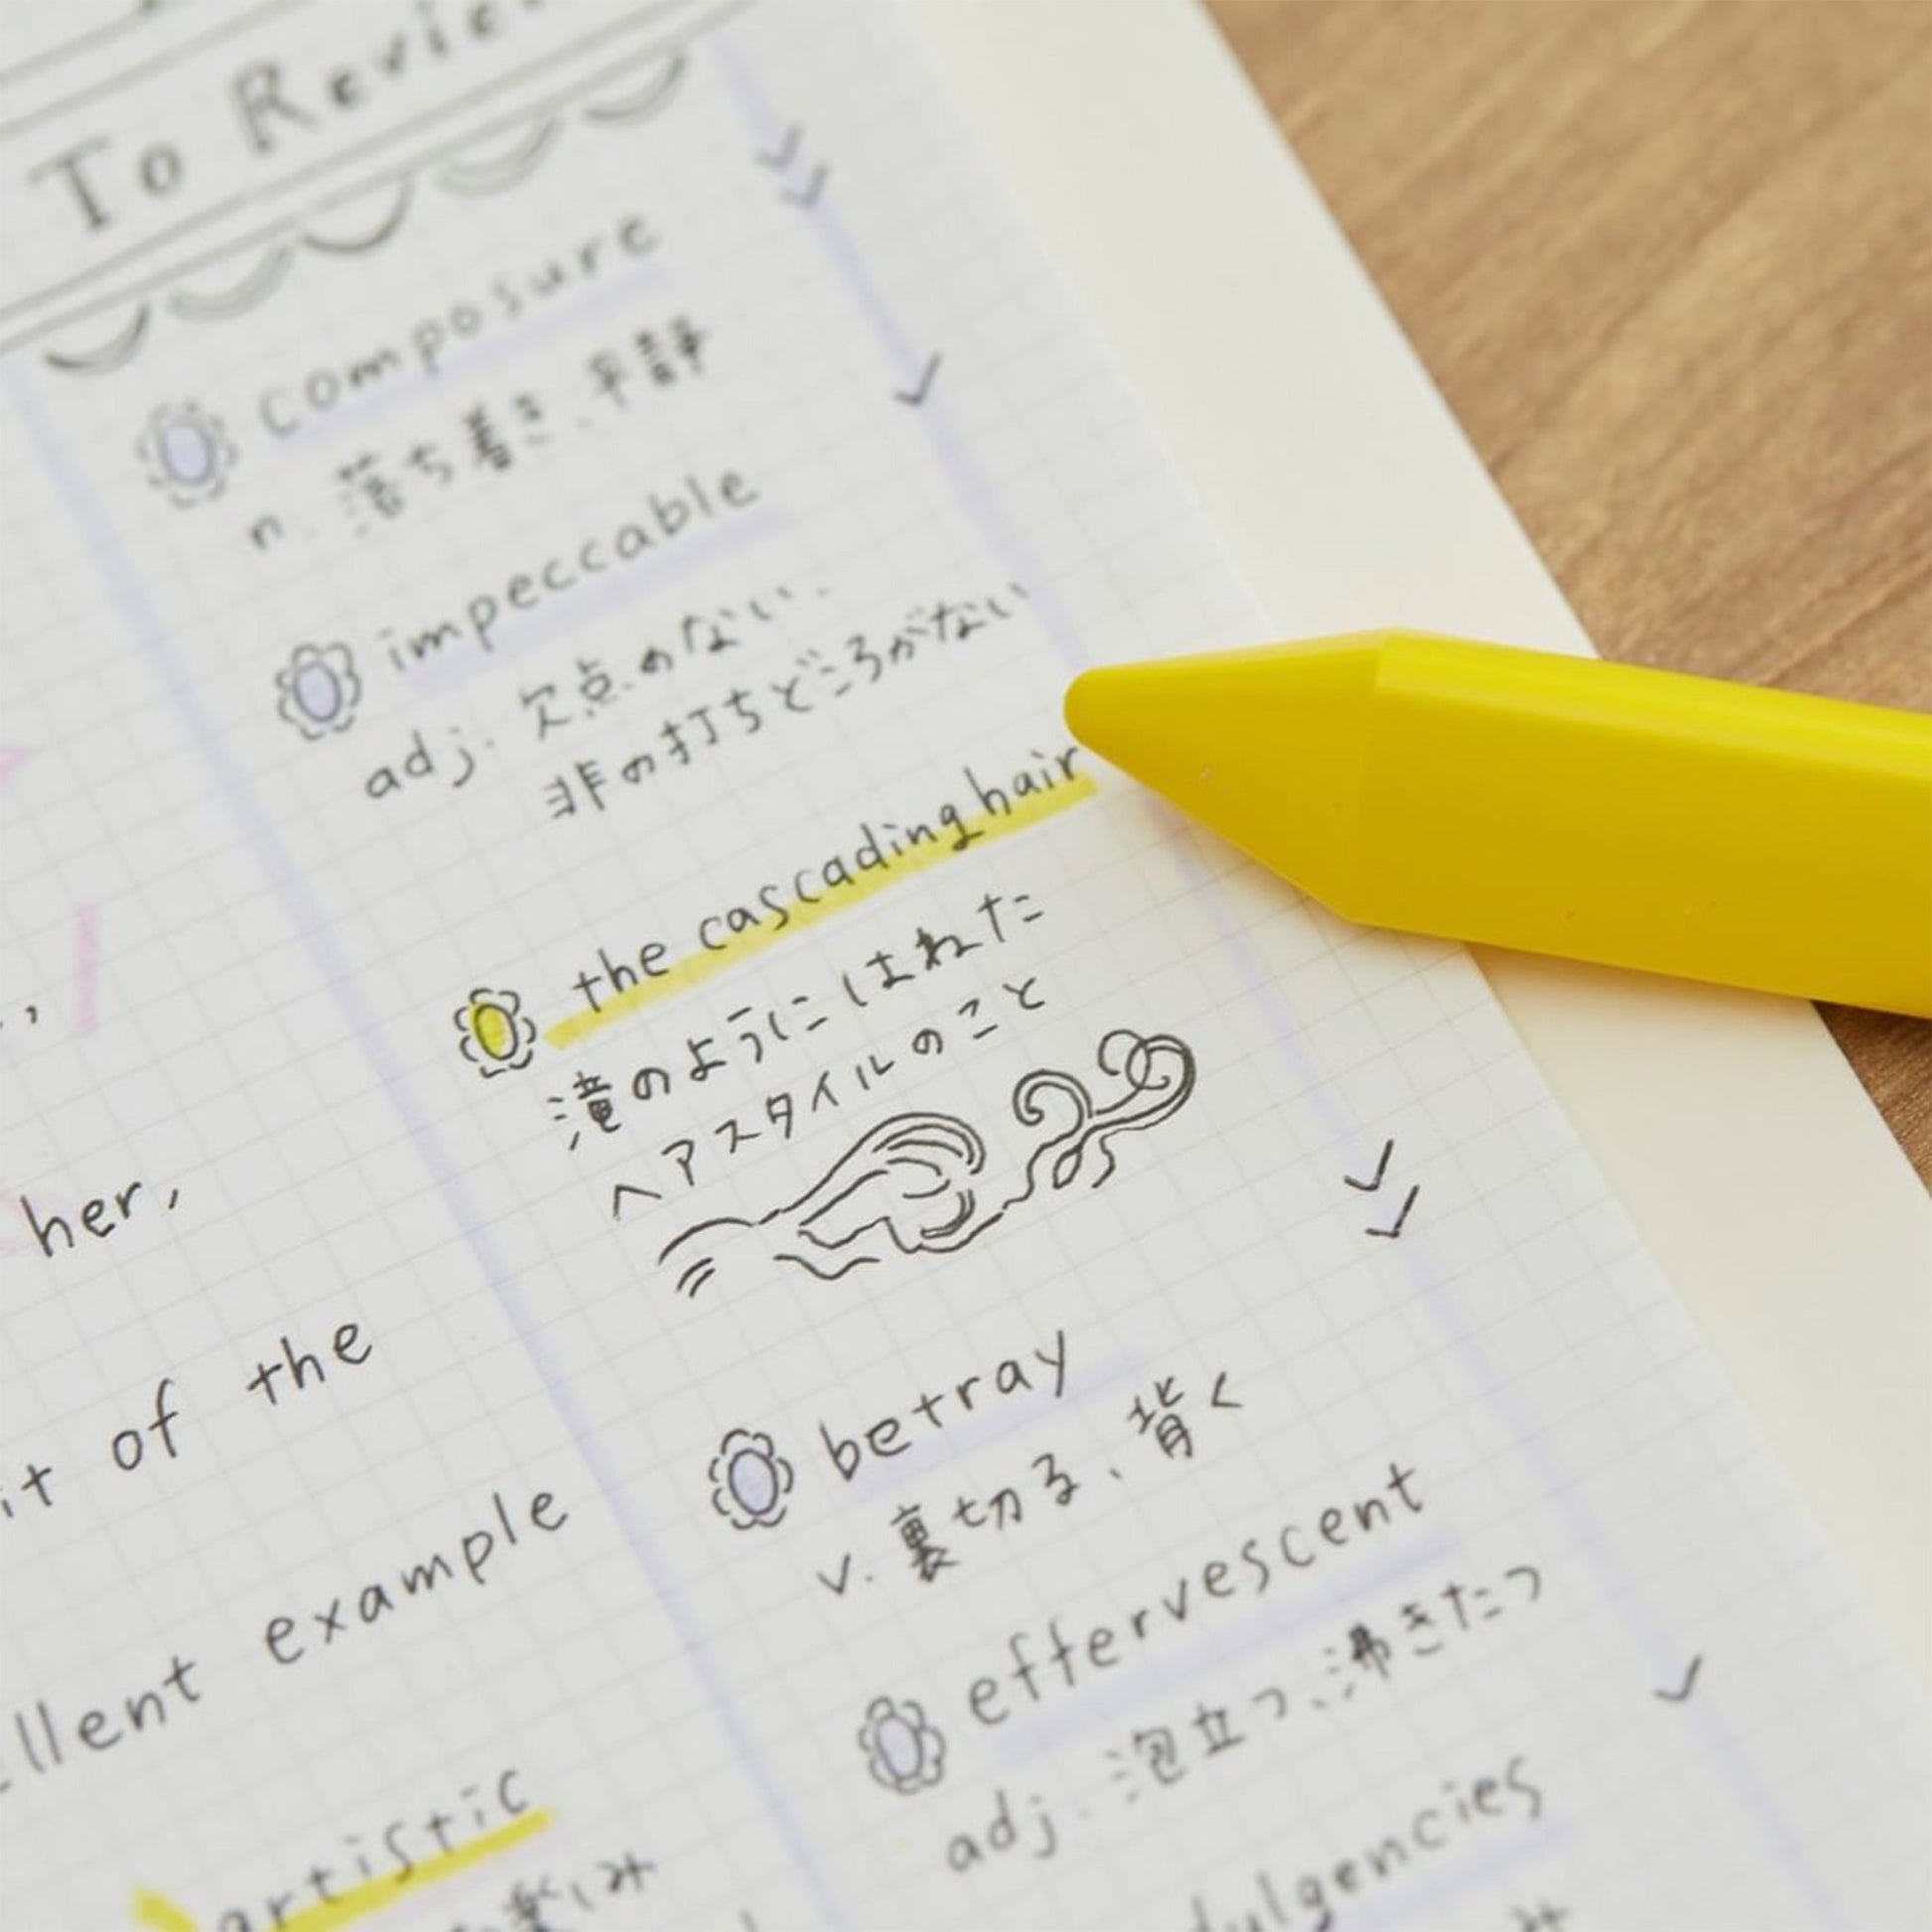 To Review
composure
n. 落ち着き、平静
impeccable
adj. 欠点のない、
非の打ちどころがない
the cascading hair
滝のようにはねた
ヘアスタイルのこと
betray
v. 裏切る、背く
effervescent
adj. 泡立つ、沸きたつ
her,
it of the
example
artistic
楽しみ